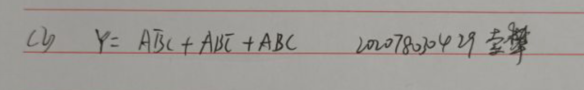 (2) Y = AB̅C + ABC̅ + ABC 202078030429